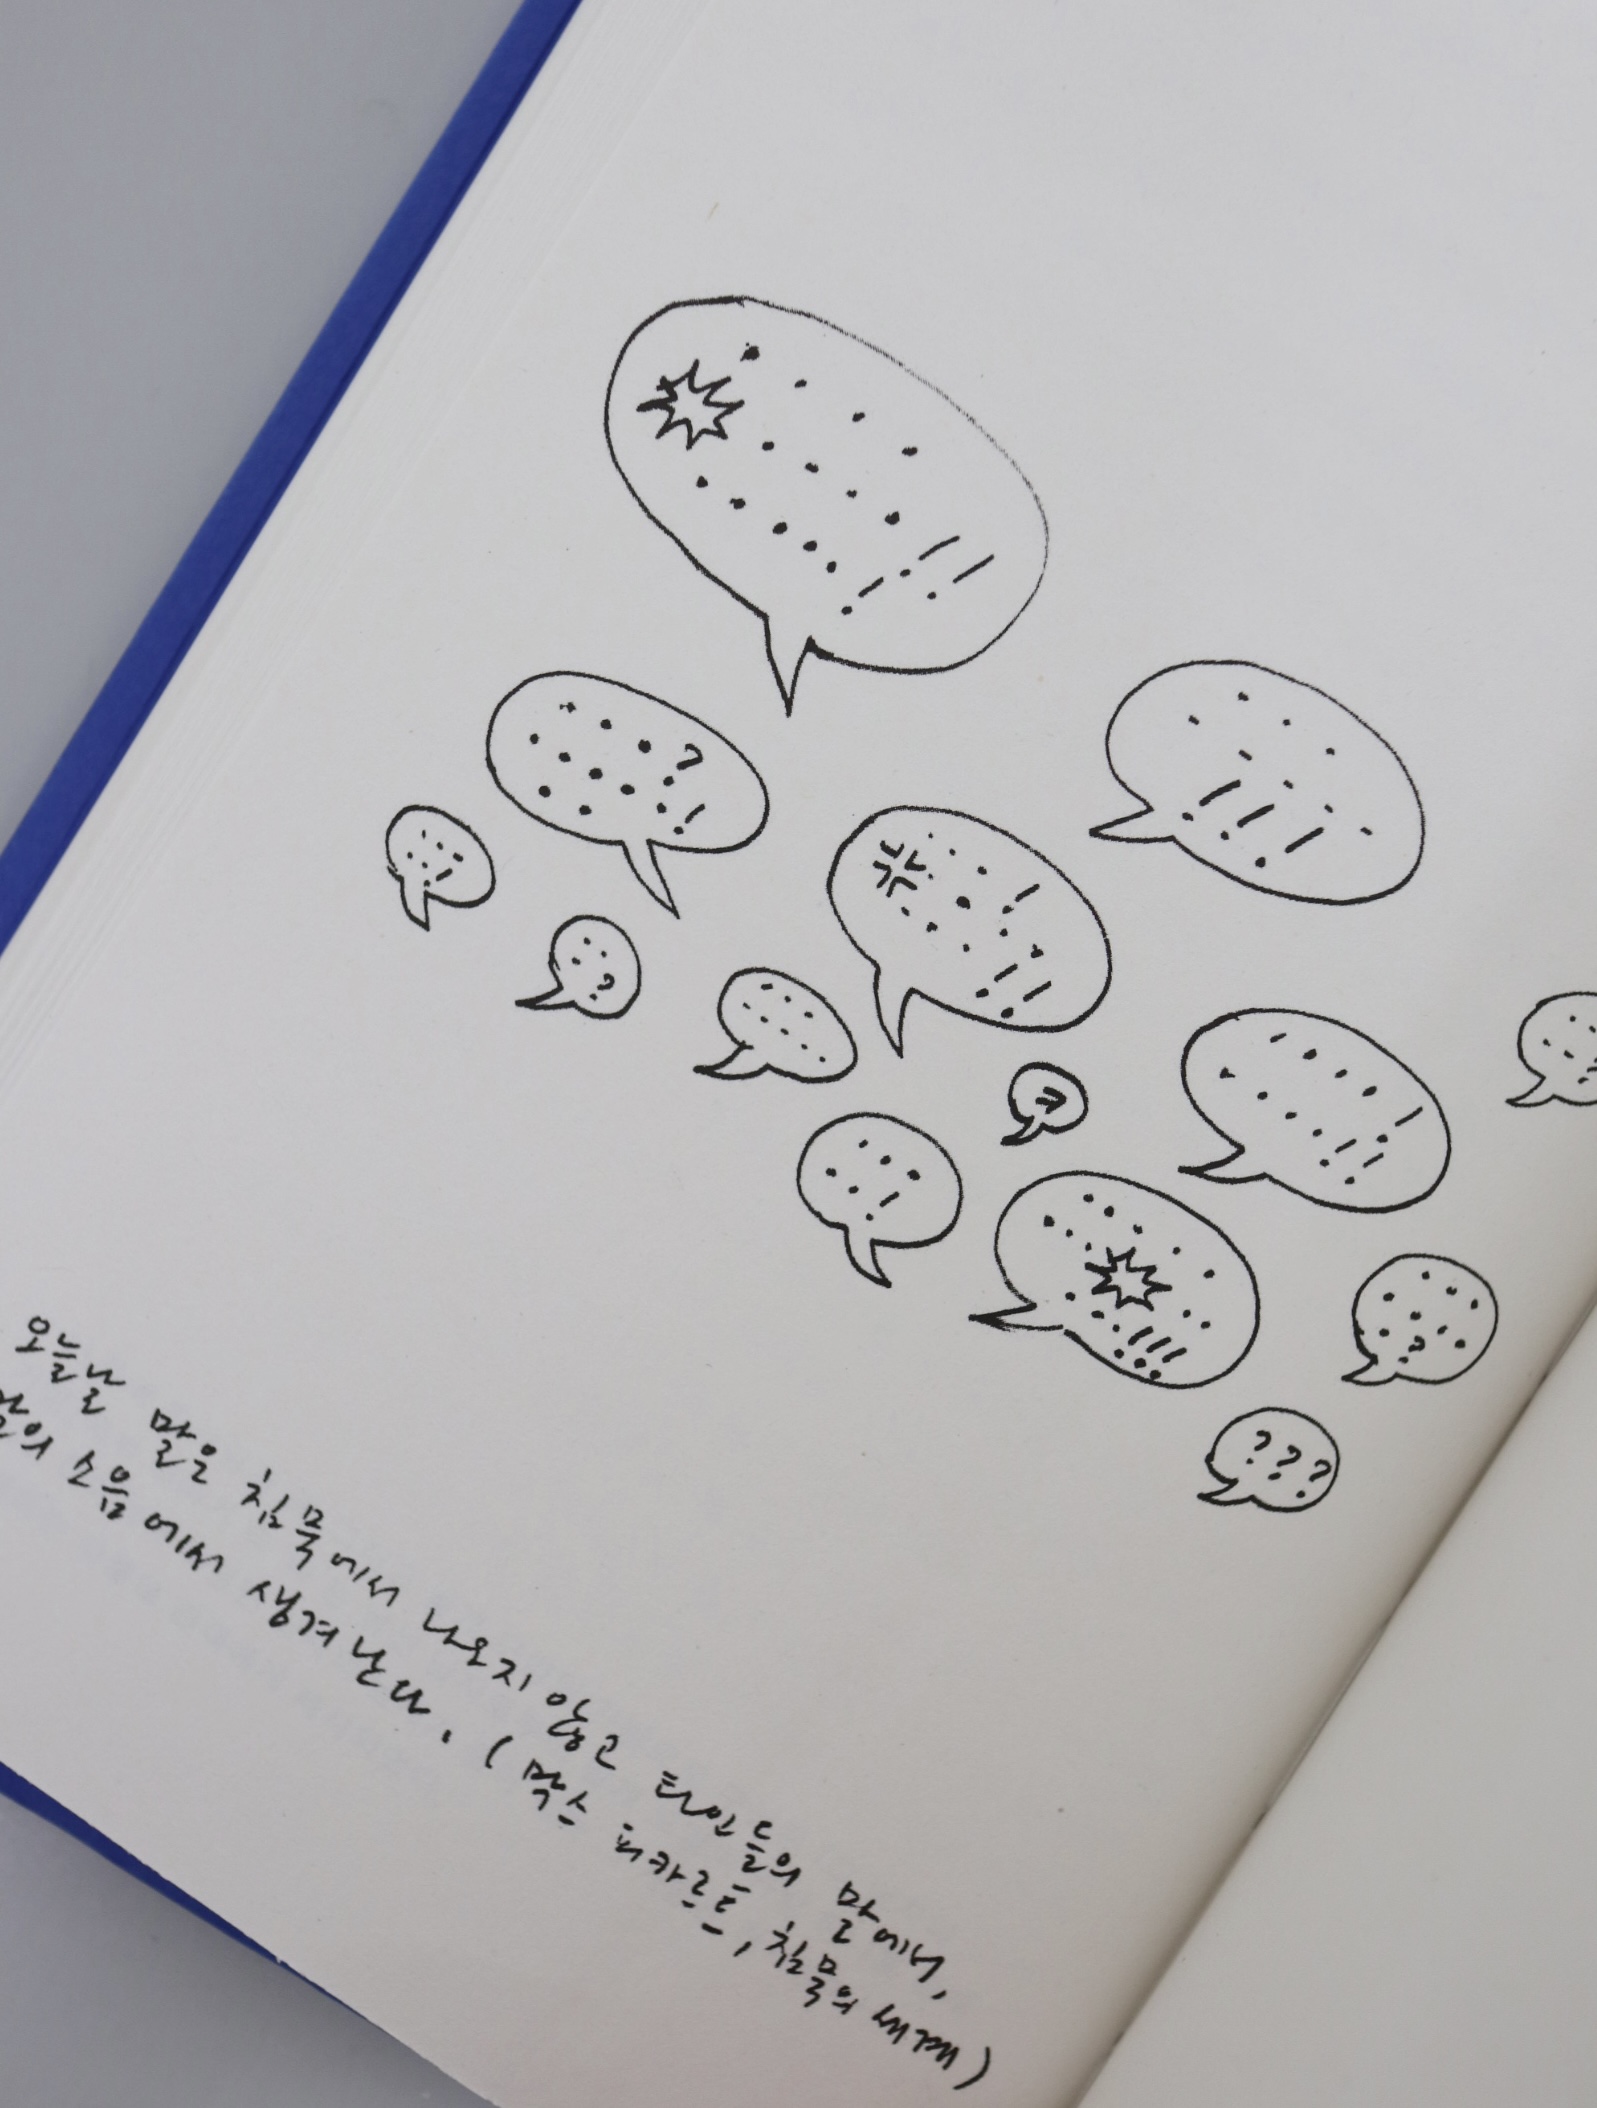 오늘날 말은 침묵에서 나오지 않고 타인들의 말에서,
말의 소음에서 생겨난다. (막스 피카르트, 침묵의 세계)